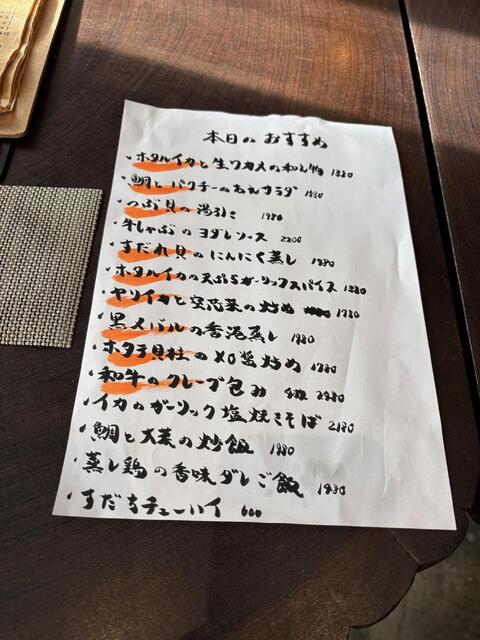 本日のおすすめ
・ホタルイカと生ワカメの和え物 1380
・鯛とパクチーのサラダ
・つぶ貝の湯引き 1980
・牛しゃぶのヨダレソース 2200
・すだれ貝のにんにく蒸し 1980
・ホタルイカの天ぷらガーリックスパイス 1380
・ヤリイカと空芯菜の炒め 1980
・黒メバルの香港蒸し 1980
・ホタテ貝柱のXO醤炒め 1980
・和牛のクレープ包み 2980
・イカのガーリック塩焼きそば 2180
・鯛と大葉の炒飯 1980
・蒸し鶏の香味ダレご飯 1980
・すだちチューハイ